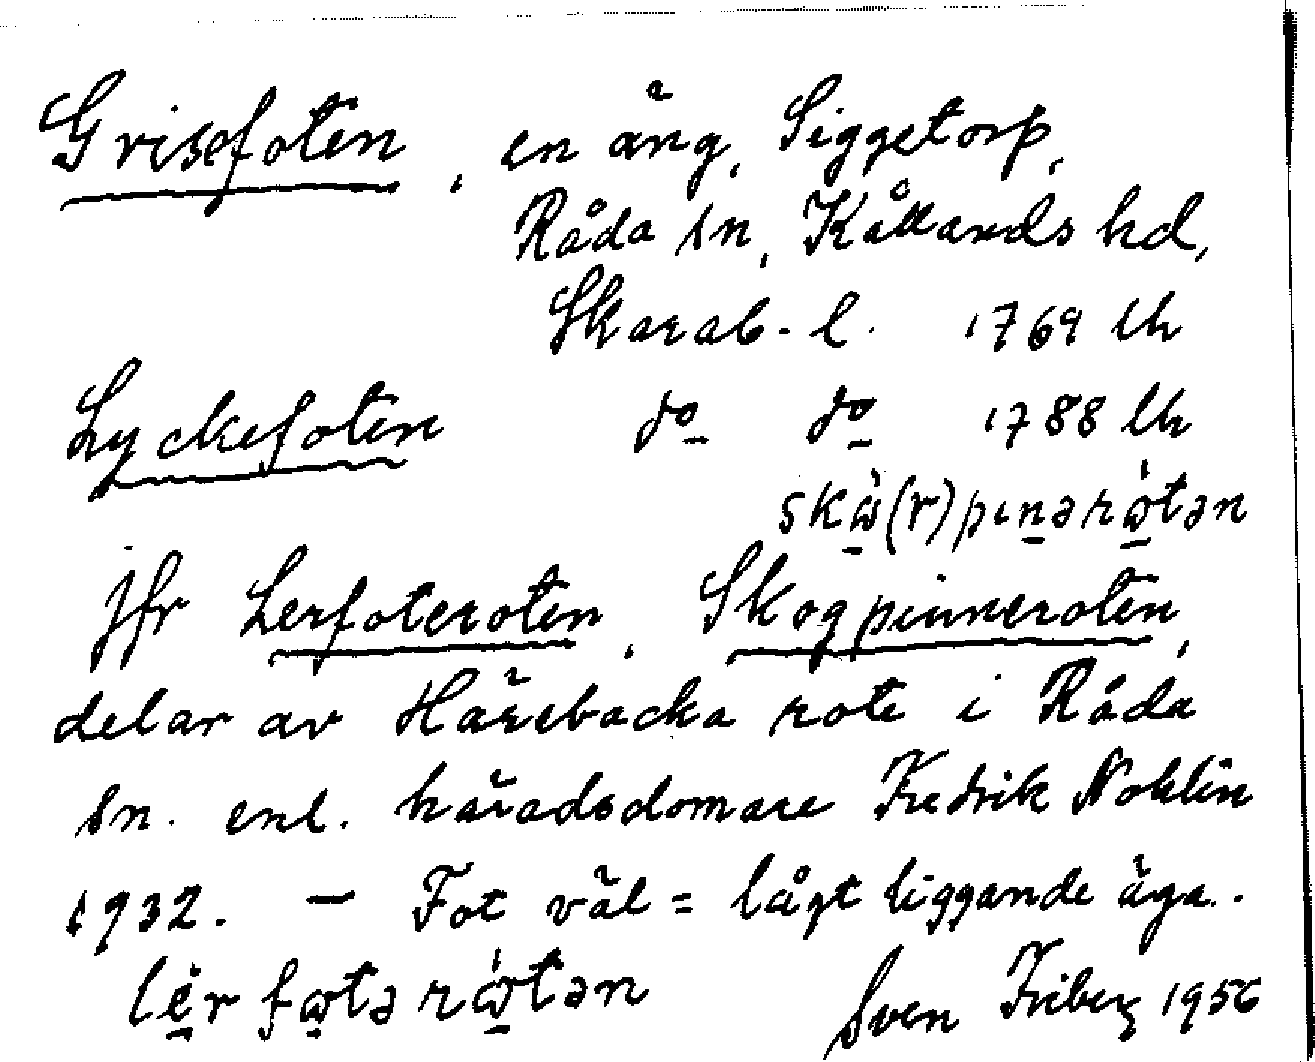 Grisefoten, en äng, Siggetorp,
Råda sn, Kållands hd,
Skarab. l. 1769 lh
Lyckefoten do do 1788 lh
skὼ(r)pɩnərὼtən
jfr Lerfoteroten, Skogpinneroten,
delar av Härebacka rote i Råda
sn. enl. häradsdomare Fredrik Nohlin
1932. — Fot väl = lågt liggande äga.
lèr fωtə rὼtən Sven Friberg 1956